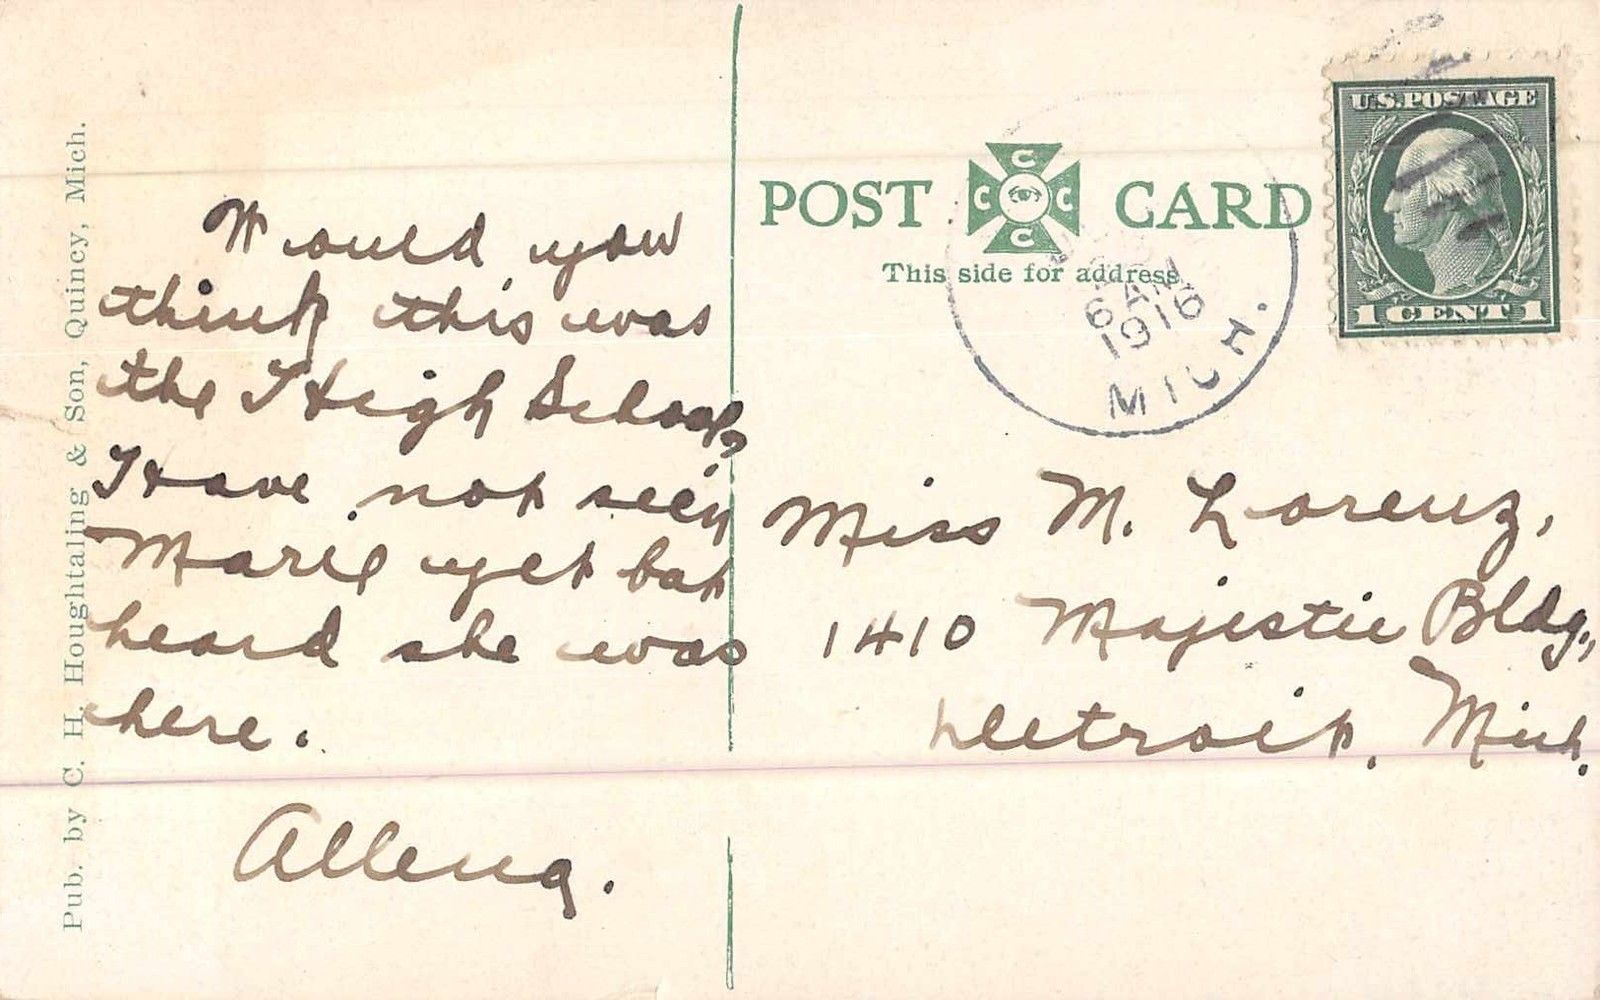 Pub. by C. H. Houghtaling & Son, Quincy, Mich.
Would you
think this was
the High School,
Have not seen
Marie yet bat
heard she was
here.
POST CARD
C
C C
C
This side for address
6 AM
1916
MICH.
U.S. POSTAGE
1 CENT 1
Miss M. Lorenz,
1410 Majestic Bldg.,
Detroit, Mich.